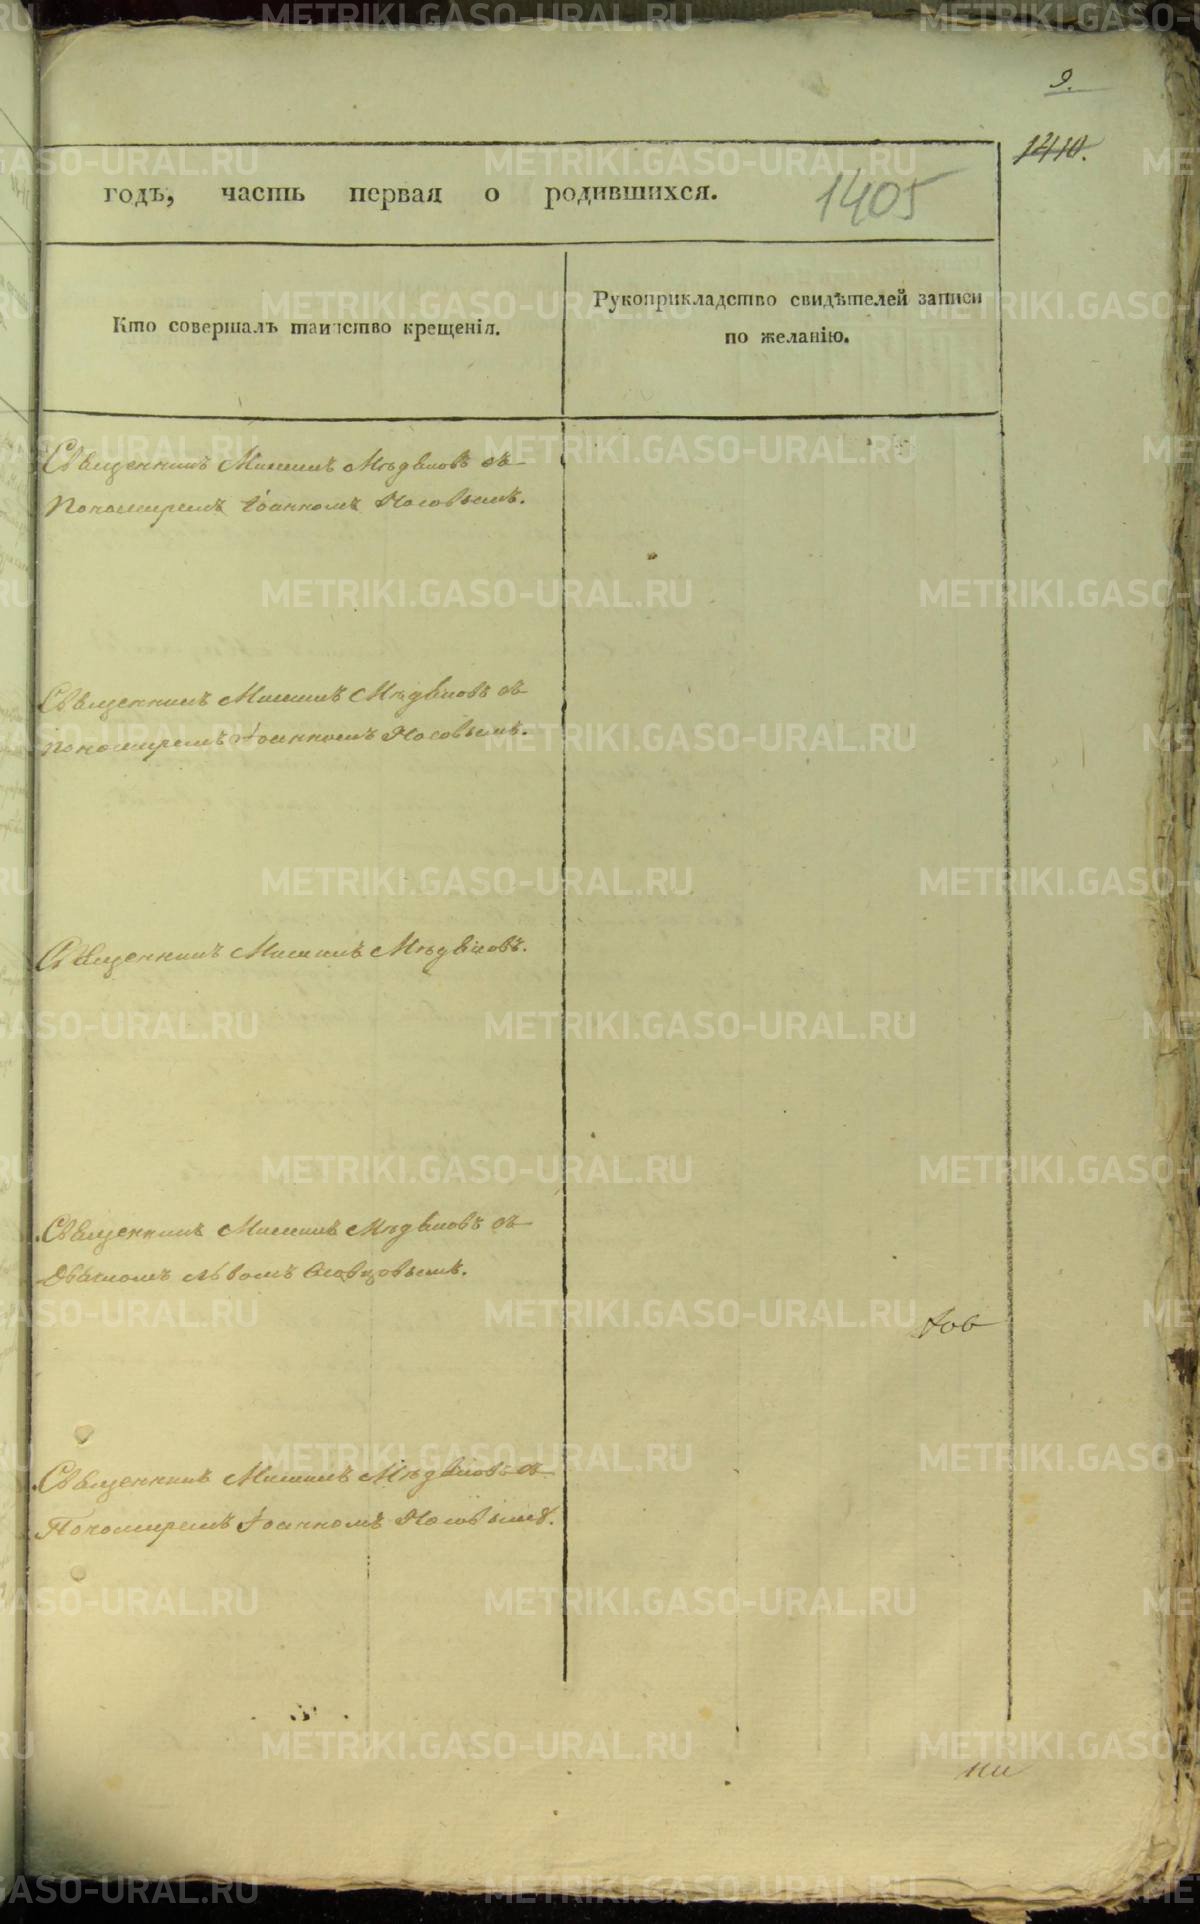 9.
1410.
годъ, часть первая о родившихся.
1405
Кто совершалъ таинство крещенія.
Рукоприкладство свидѣтелей записи
по желанію.
Священникъ Михаилъ Мѣдвѣдовъ съ
Пономаремъ Іоанномъ Носовымъ.
Священникъ Михаилъ Мѣдвѣдовъ съ
пономаремъ Іоанномъ Носовымъ.
Священникъ Михаилъ Мѣдвѣдовъ.
Священникъ Михаилъ Мѣдвѣдовъ съ
Дьячкомъ Львомъ
Священникъ Михаилъ Мѣдвѣдовъ съ
Пономаремъ Іоанномъ Носовымъ.
METRIKI.GASO-URAL.RU